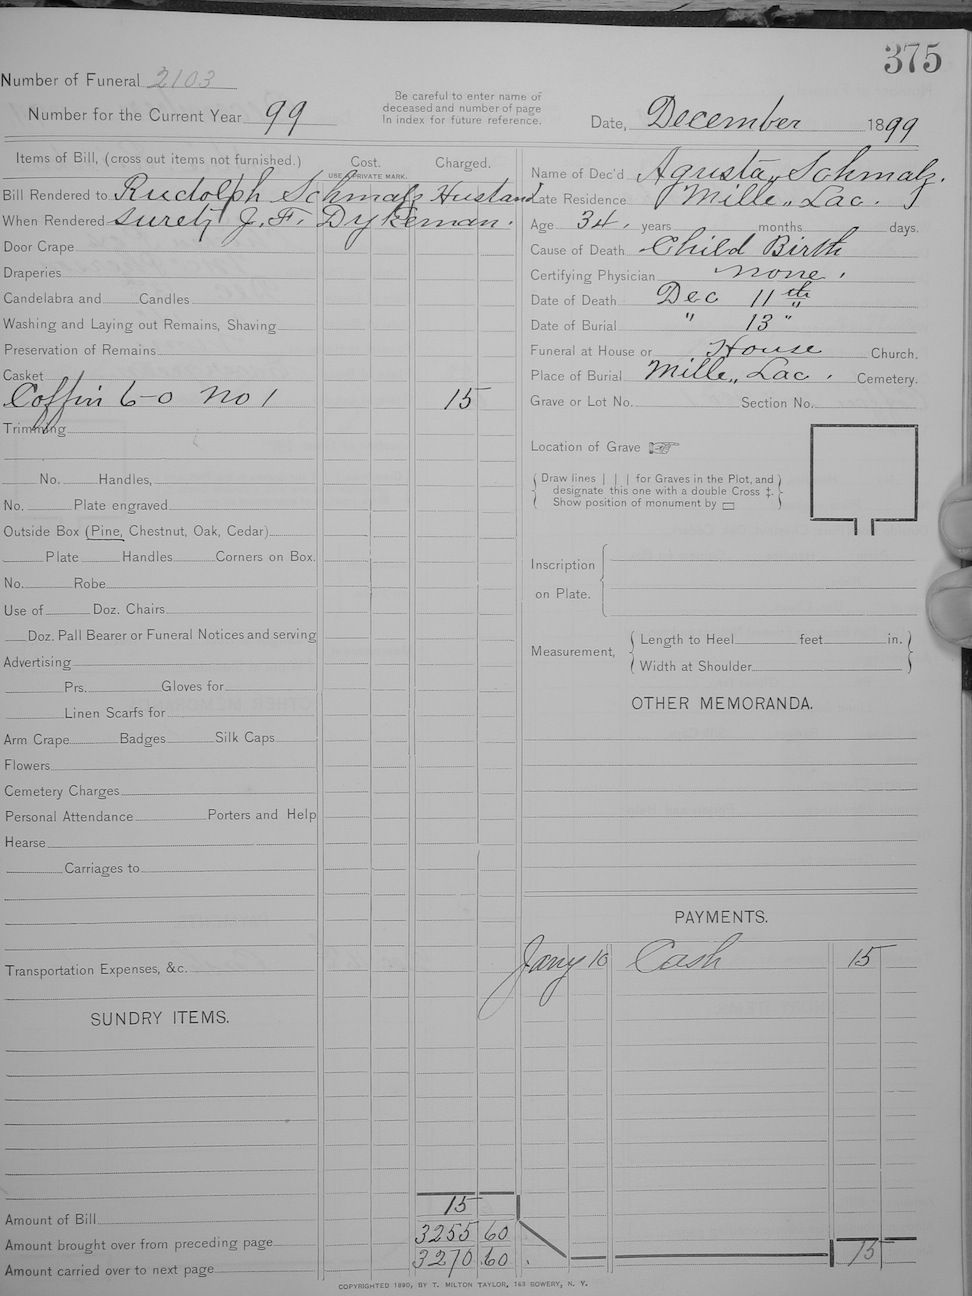 375
Number of Funeral 2103
Number for the Current Year 99
Be careful to enter name of
deceased and number of page
In index for future reference.
Date, December 1899
Items of Bill, (cross out items not furnished.) Cost. Charged.
USE A PRIVATE MARK.
Bill Rendered to Rudolph Schmalz Husband
When Rendered surety J. F. Dykeman.
Door Crape
Draperies
Candelabra and Candles
Washing and Laying out Remains, Shaving
Preservation of Remains
Casket
Coffin 6-0 No 1 15
Trimming
No. Handles,
No. Plate engraved
Outside Box (Pine, Chestnut, Oak, Cedar)
Plate Handles Corners on Box.
No. Robe
Use of Doz. Chairs
Doz. Pall Bearer or Funeral Notices and serving
Advertising
Prs. Gloves for
Linen Scarfs for
Arm Crape Badges Silk Caps
Flowers
Cemetery Charges
Personal Attendance Porters and Help
Hearse
Carriages to
Transportation Expenses, &c.
SUNDRY ITEMS.
Amount of Bill 15
Amount brought over from preceding page 3255 60
Amount carried over to next page 3270 60
Name of Dec'd Agusta Schmalz.
Late Residence Mille Lac.
Age 34, years months days.
Cause of Death Child Birth
Certifying Physician none.
Date of Death Dec 11th
Date of Burial " 13 "
Funeral at House or House Church.
Place of Burial Mille Lac. Cemetery.
Grave or Lot No. Section No.
Location of Grave
Draw lines | | | for Graves in the Plot, and
designate this one with a double Cross ‡.
Show position of monument by ▭
Inscription
on Plate.
Measurement, Length to Heel feet in.
Width at Shoulder
OTHER MEMORANDA.
PAYMENTS.
Jany 10 Cash 15
15
COPYRIGHTED 1890, BY T. MILTON TAYLOR, 163 BOWERY, N. Y.